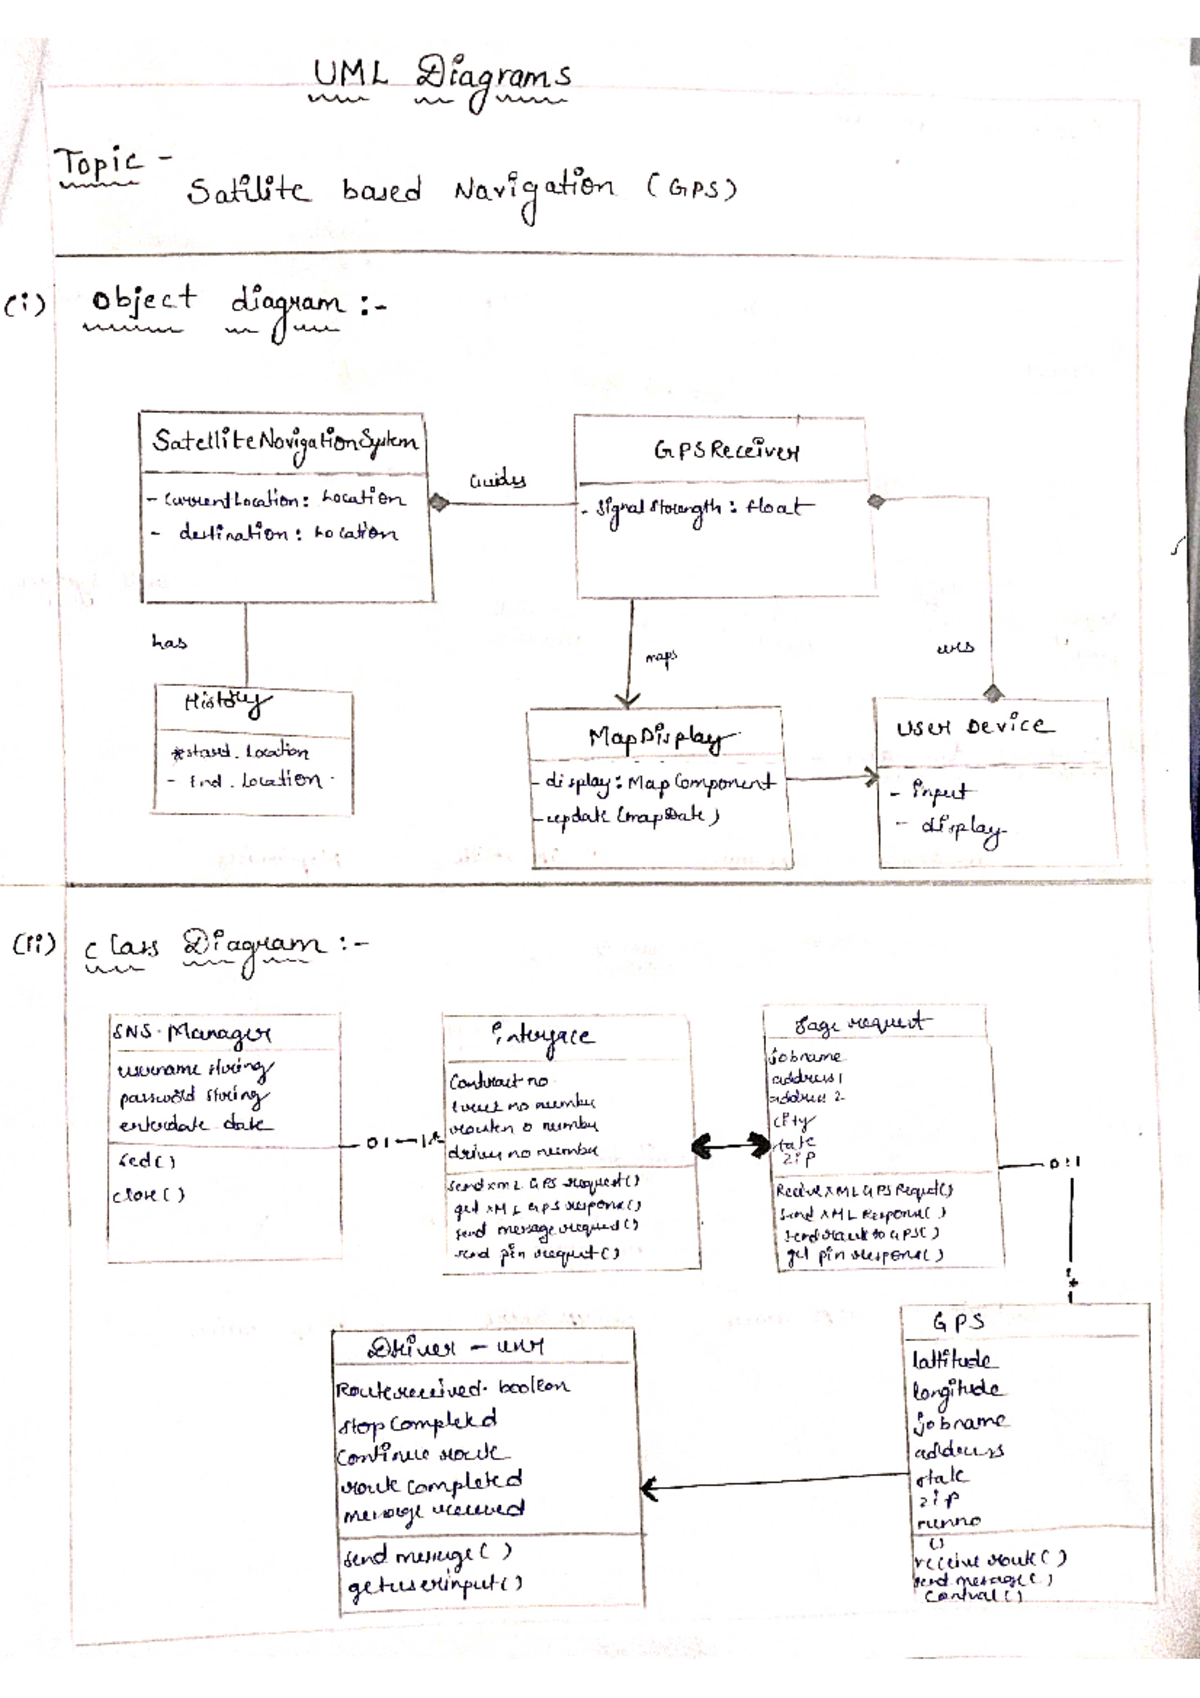 UML Diagrams
Topic -
Satilite based Navigation (GPS)
(i) Object diagram :-
SatelliteNavigationSystem
- CurrentLocation : Location
- destination : Location
Guides
GPSReceiver
- Signal Strength : float
has
maps
History
start. Location
- End. Location
MapDisplay
- display : MapComponent
- update (mapDate)
User Device
- input
- display
(ii) class Diagram :-
SNS. Manager
username string
password string
enterdate date
close()
0 1 — 1 *
interface
Contract no
number
number
driver no number
send XML GPS request()
get XML GPS response()
send message request()
send pin request()
request
jobname
address 1
address 2
city
state
zip
Receive XML GPS Request()
Send XML Response()
send route to GPS()
get pin response()
0:1
*
1
GPS
lattitude
longitude
jobname
address
state
zip
runno
()
receive route()
send message()
Control()
Driver -
Route received. boolean
Stop Completed
Continue route
route completed
message received
send message()
getuserinput()